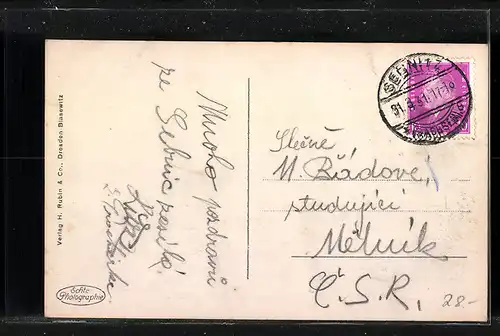 Verlag H. Rubin & Co., Dresden-Blasewitz
Echte
Photographie
Mnoho pozdravů
ze Sebnic zasílá
SEBNITZ
31.8.31.17-18
Slečně
M. Řádové,
studující
Mělník
Č.S.R.
28.-